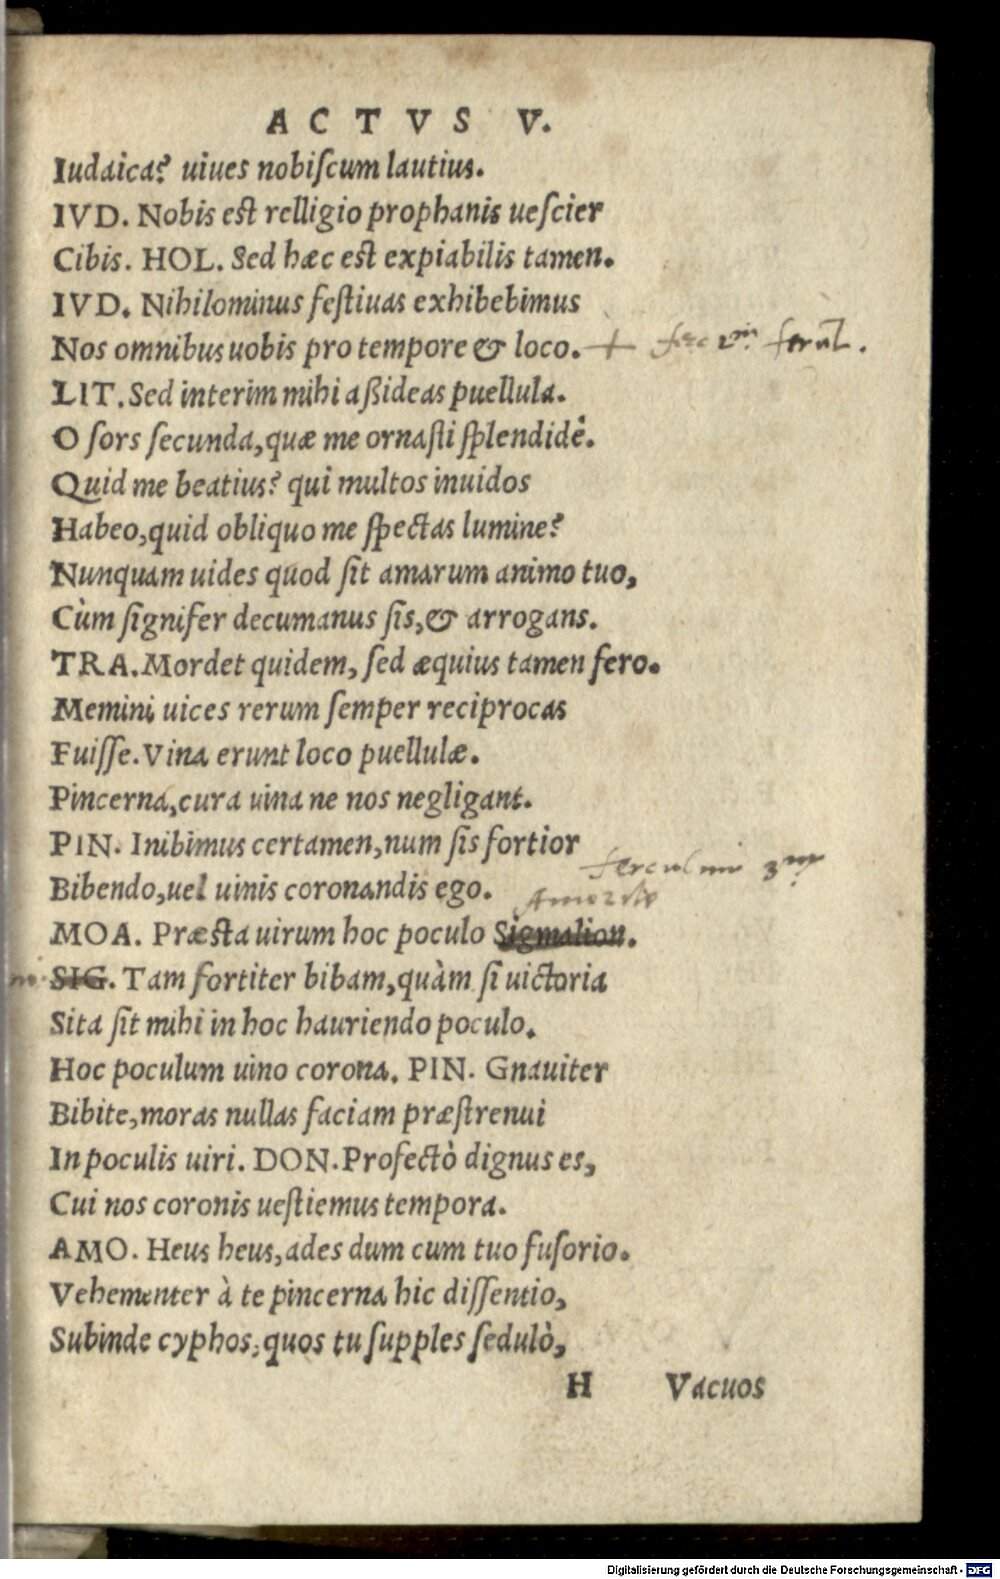 ACTVS V.
Iudaica? uiues nobiſcum lautius.
IVD. Nobis est relligio prophanis ueſcier
Cibis. HOL. Sed hæc est expiabilis tamen.
IVD. Nihilominus feſtiuas exhibebimus
Nos omnibus uobis pro tempore & loco.
LIT. Sed interim mihi aßideas puellula.
O ſors ſecunda, quæ me ornaſti ſplendidè.
Quid me beatius? qui multos inuidos
Habeo, quid obliquo me ſpectas lumine?
Nunquam uides quod ſit amarum animo tuo,
Cùm ſignifer decumanus ſis, & arrogans.
TRA. Mordet quidem, ſed æquius tamen fero.
Memini uices rerum ſemper reciprocas
Fuiſſe. Vina erunt loco puellulæ.
Pincerna, cura uina ne nos negligant.
PIN. Inibimus certamen, num ſis fortior
Bibendo, uel uinis coronandis ego.
MOA. Præsta uirum hoc poculo Sigmalion.
SIG. Tam fortiter bibam, quàm ſi uictoria
Sita ſit mihi in hoc hauriendo poculo.
Hoc poculum uino corona. PIN. Gnauiter
Bibite, moras nullas faciam præſtrenui
In poculis uiri. DON. Profectò dignus es,
Cui nos coronis ueſtiemus tempora.
AMO. Heus heus, ades dum cum tuo fuſorio.
Vehementer à te pincerna hic diſſentio,
Subinde cyphos, quos tu ſupples ſedulò,
H Vacuos
Digitalisierung gefördert durch die Deutsche Forschungsgemeinschaft - DFG